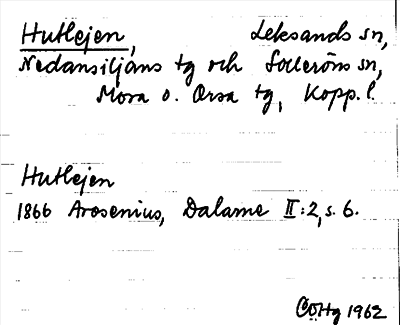 Hutlejen, Leksands sn,
Nedansiljans tg och Solleröns sn,
Mora o. Orsa tg, Kopp. l.
Hutlejen
1866 Arosenius, Dalarne II:2, s. 6.
CÖHg 1962